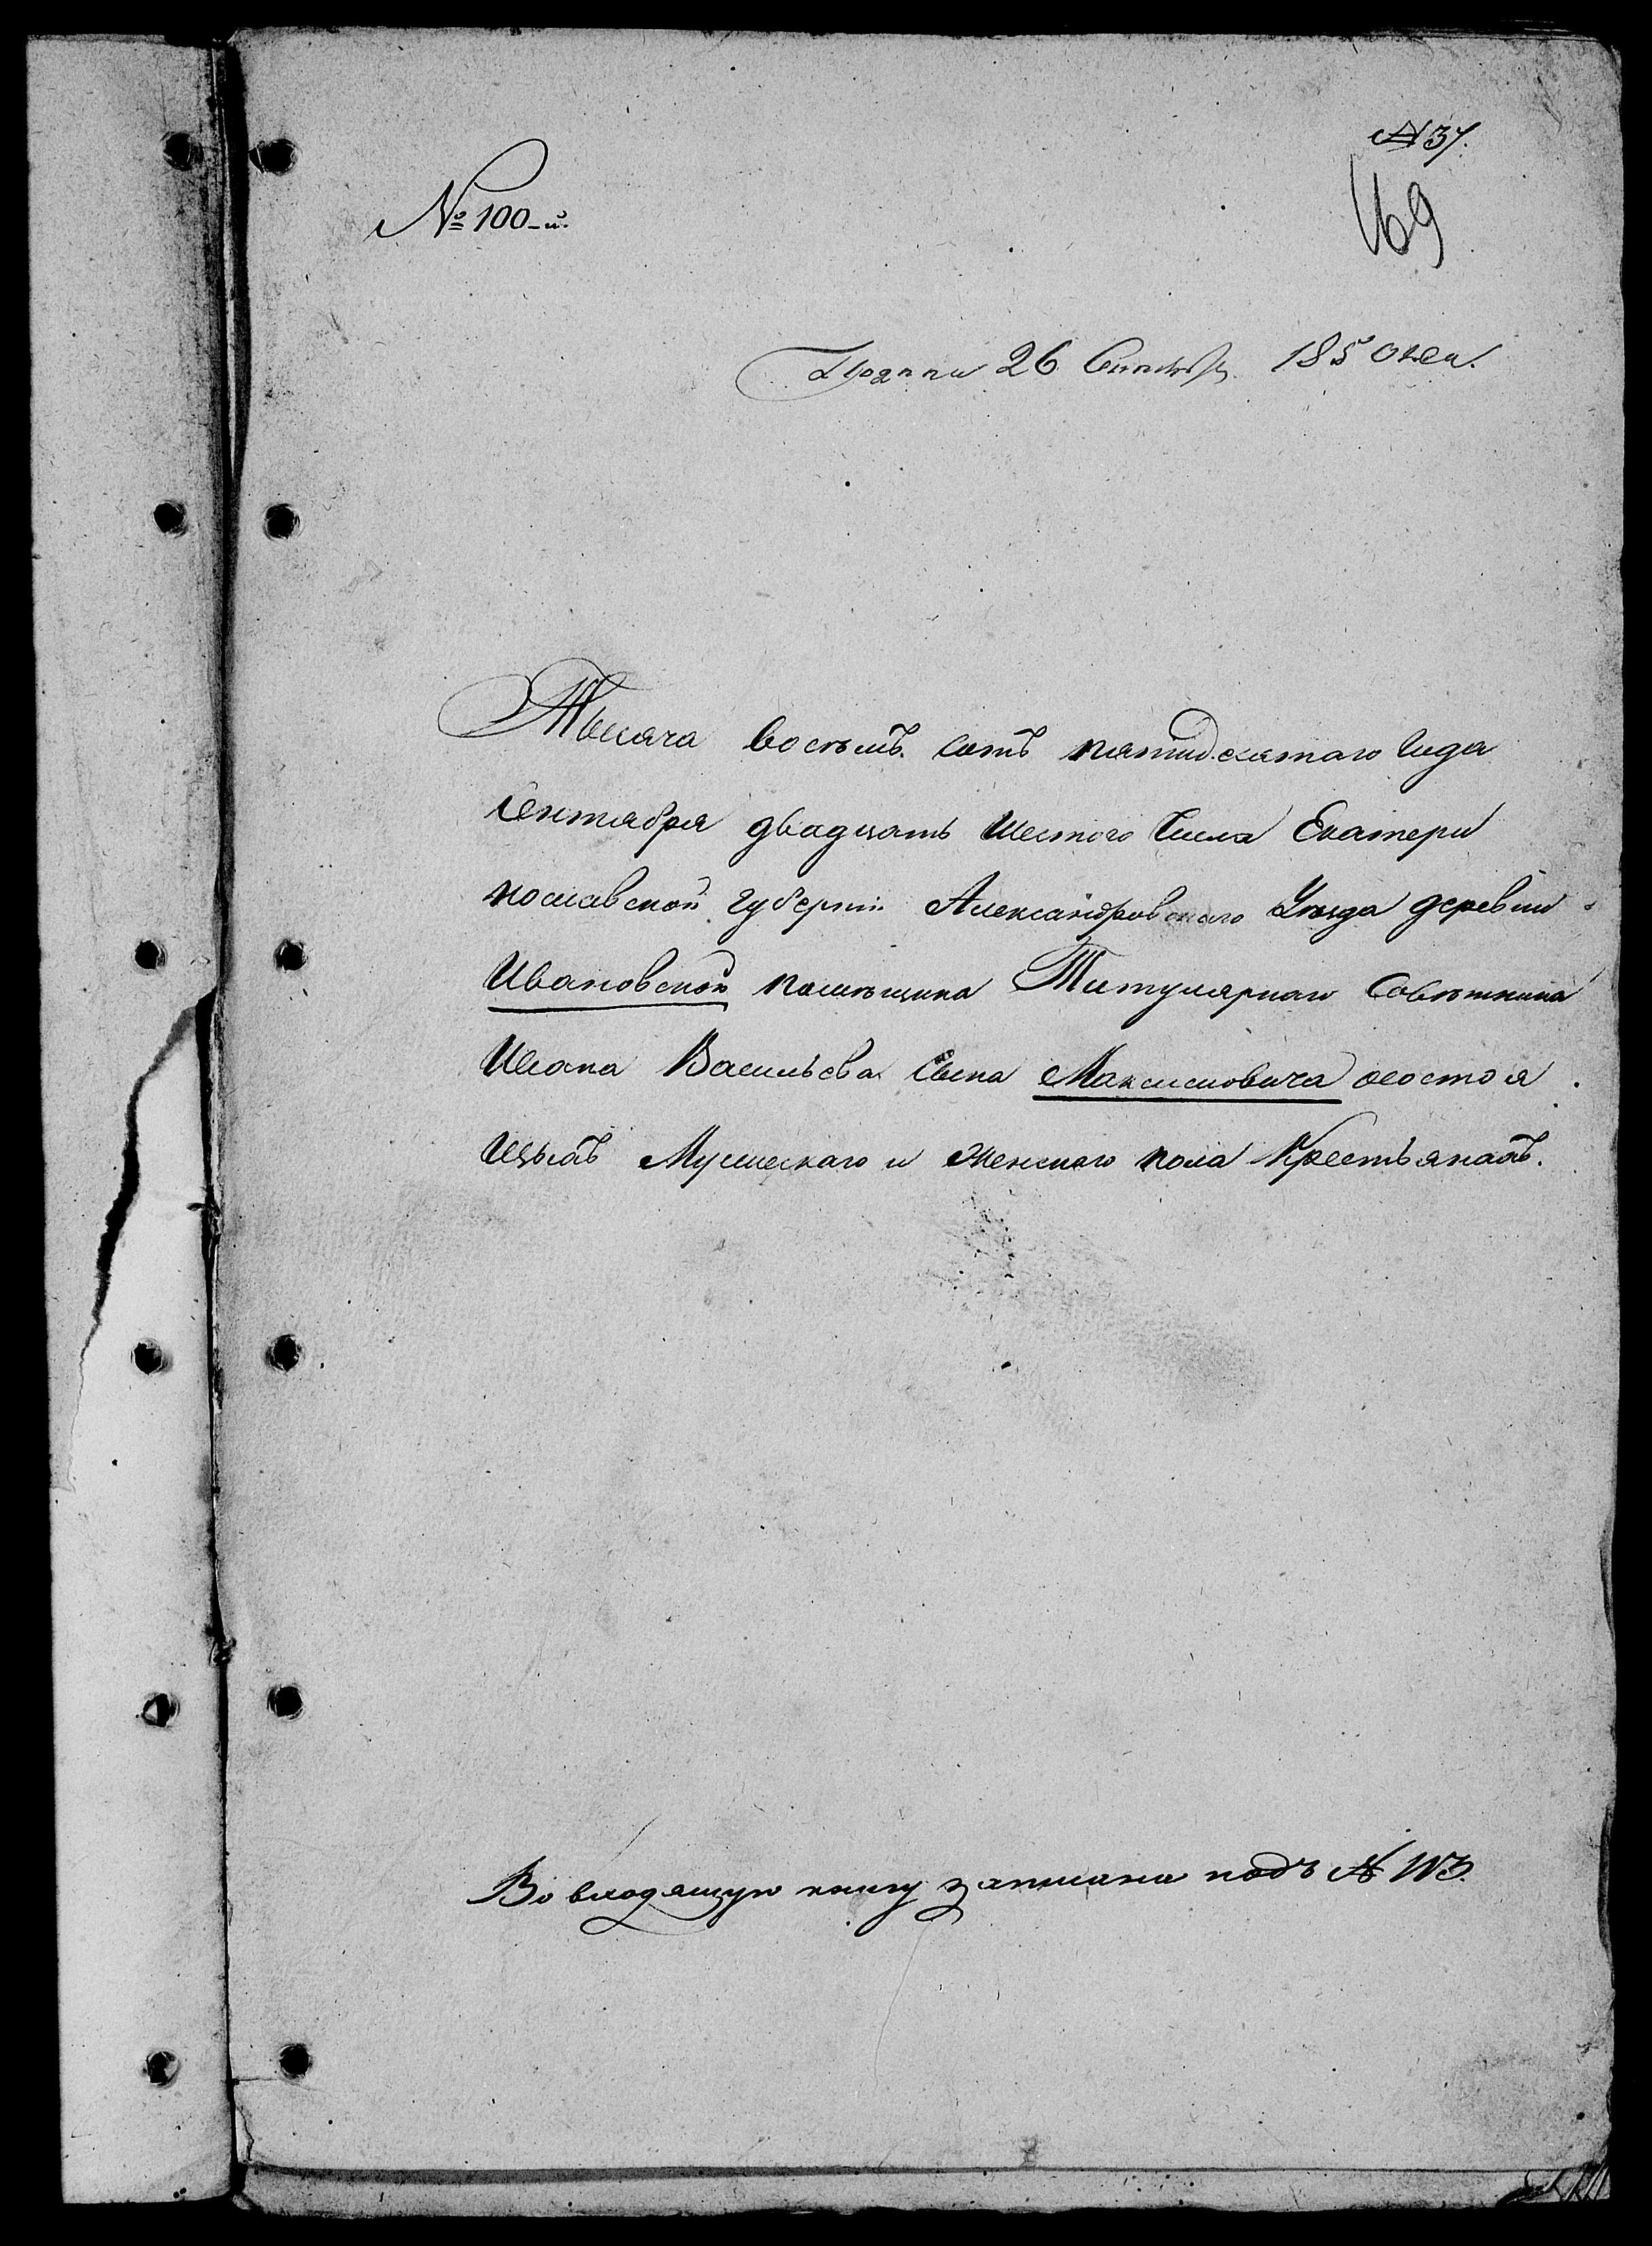 № 37.
169
№ 100-й.
26 Сентября 1850 года.
Тысяча восемь сотъ пятидесятаго Года
Сентября двадцать шестого Числа Екатери
нославской губерніи Александровскаго Уѣзда деревни
Ивановской помѣщика Титулярнаго Совѣтника
Ивана Васильева Сына Максимовича о состоя
щихъ Мужескаго и Женскаго пола Крестьянахъ.
Во входящую книгу записана подъ №